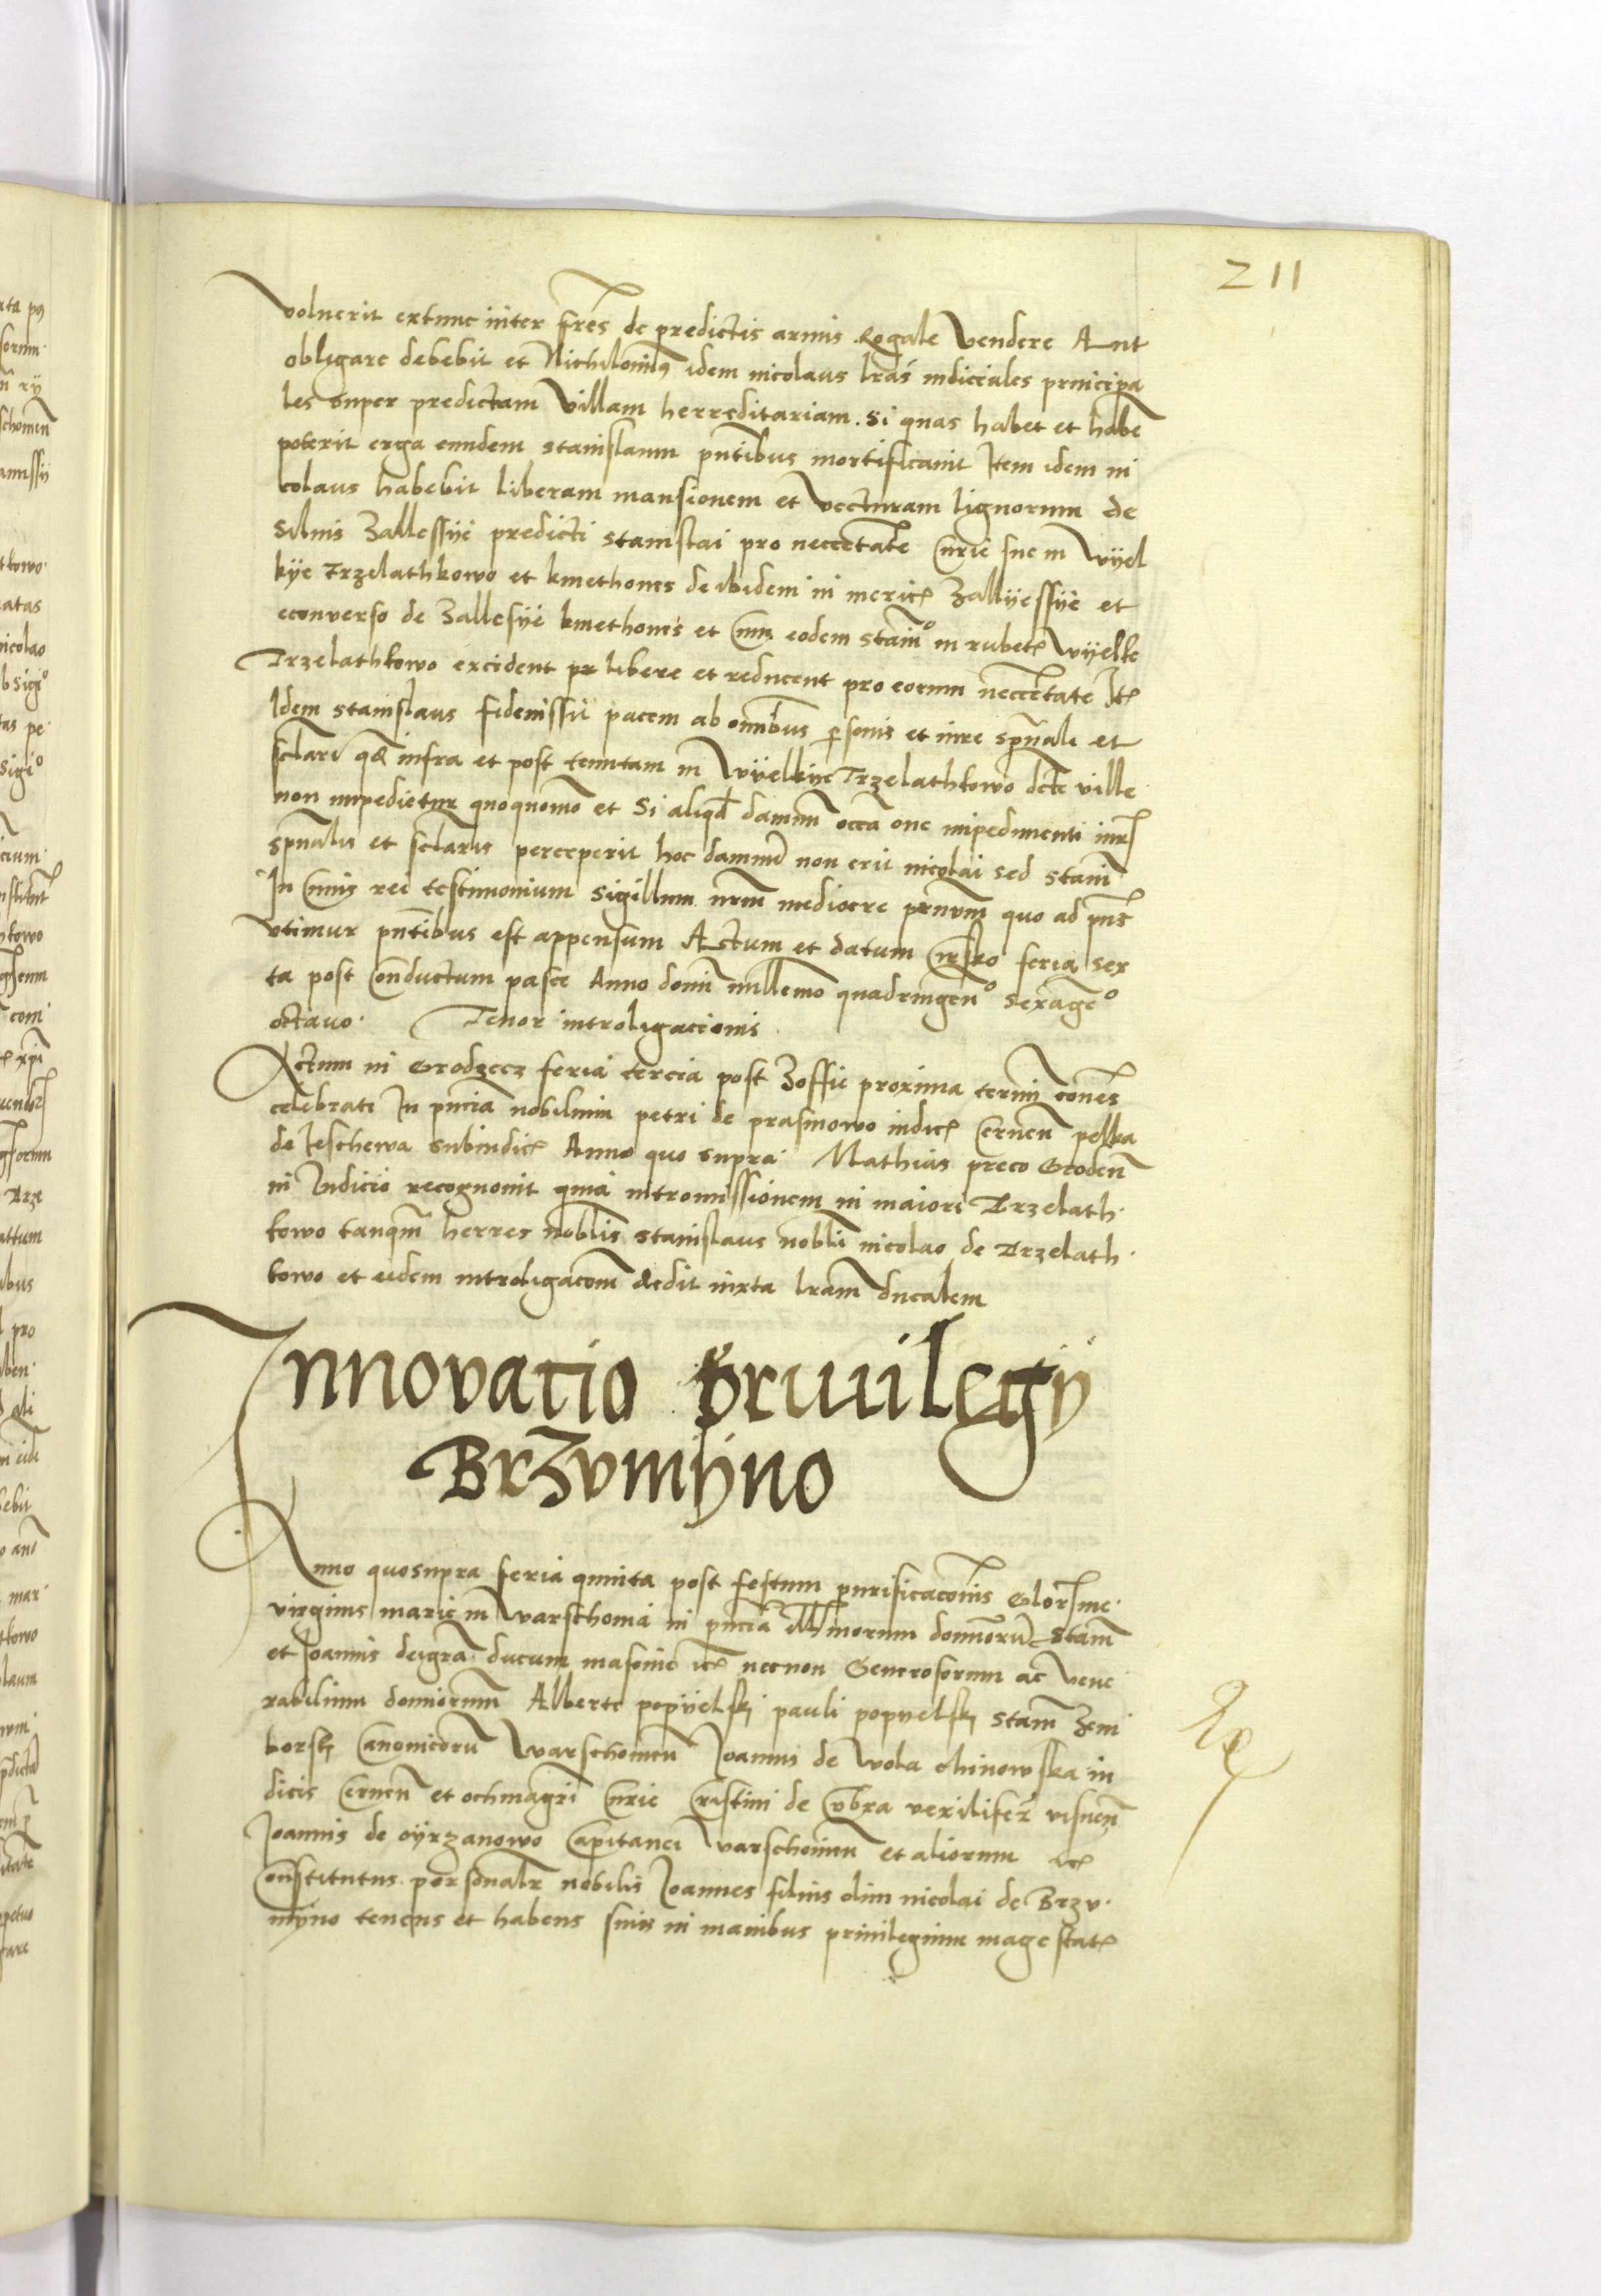 211
voluerit extunc inter fres de predictis armis Rogale vendere Aut
obligare debebit et Nichilominus idem nicolaus lras iudiciales principa
les super predictam villam herreditariam. Si quas habet et habe
poterit erga eundem stanislaum pntibus mortificauit Item idem ni
colaus habebit liberam mansionem et vecturam lignorum de
Siluis Zallessye predicti stanislai pro neccetate Curie sue in wyel
kye Trzelathkowo et kmethones de ibidem in meric Zallyessye et
econuerso de Zallesye kmethones et cum eodem stanio in rubet wyelke
Trzelathkowo excident libere et reducent pro eorum neccetate Ite
Idem stanislaus fideiussit pacem ab omnibus personis et iure spuali et
sclari q infra et post tentam in wyelkye Trzelathkowo dcte ville
non impedietur quoquomo et Si aliqd damnu occa one impedimenti iur
spualis et sclaris perceperit hoc damnu non erit nicolai sed stani
In Cuius rei testimonium Sigillum nrm mediocre quo ad pns
vtimur pntibus est appensum Actum et datum feria sex
ta post Conductum pasce Anno domi millemo quadringeno sexageo
octauo. Tenor introligacionis.
Actum in Grodzecz feria tercia post Zoffie proxima termi cones
celebrati In pncia nobilium petri de prasmowo iudic Cernen pelka
de Jeschewa Subiudic Anno quo supra. Mathias preco Groden
in Iudicio recognouit quia intromissionem in maiori Trzelath
kowo tanqm herres noblis stanislaus nobli nicolao de Trzelath
kowo et eidem introligacom dedit iuxta lram ducalem
Innovatio priuilegij
Brzvmyno
Anno quosupra feria quinta post festum purificaconis Glorisme
virginis marie in warschouia in pncia Illmorum domnoru Stani
et Joannis deigra ducum masouie ic necnon Generosorum ac vene
rabilium domnorum Alberti popyelski pauli popyelski Stani
borski Canonicoru warschouien Joannis de wola chinowska iu
dicis Cernen et ochmagri Curie Cristini de vexilifer visnen
Joannis de oyrzanowo Capitanei warschouien et aliorum ic
Constitutus personalr nobilis Joannes filius olim nicolai de Brzv
myno tenens et habens suis in manibus priuilegium magestat